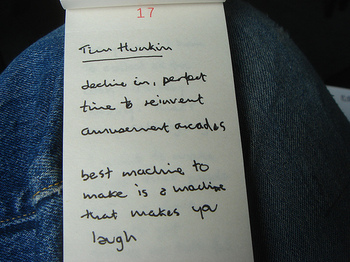 17
Tim Hunkin
decline in, perfect
time to reinvent
amusement arcades
best machine to
make is a machine
that makes you
laugh